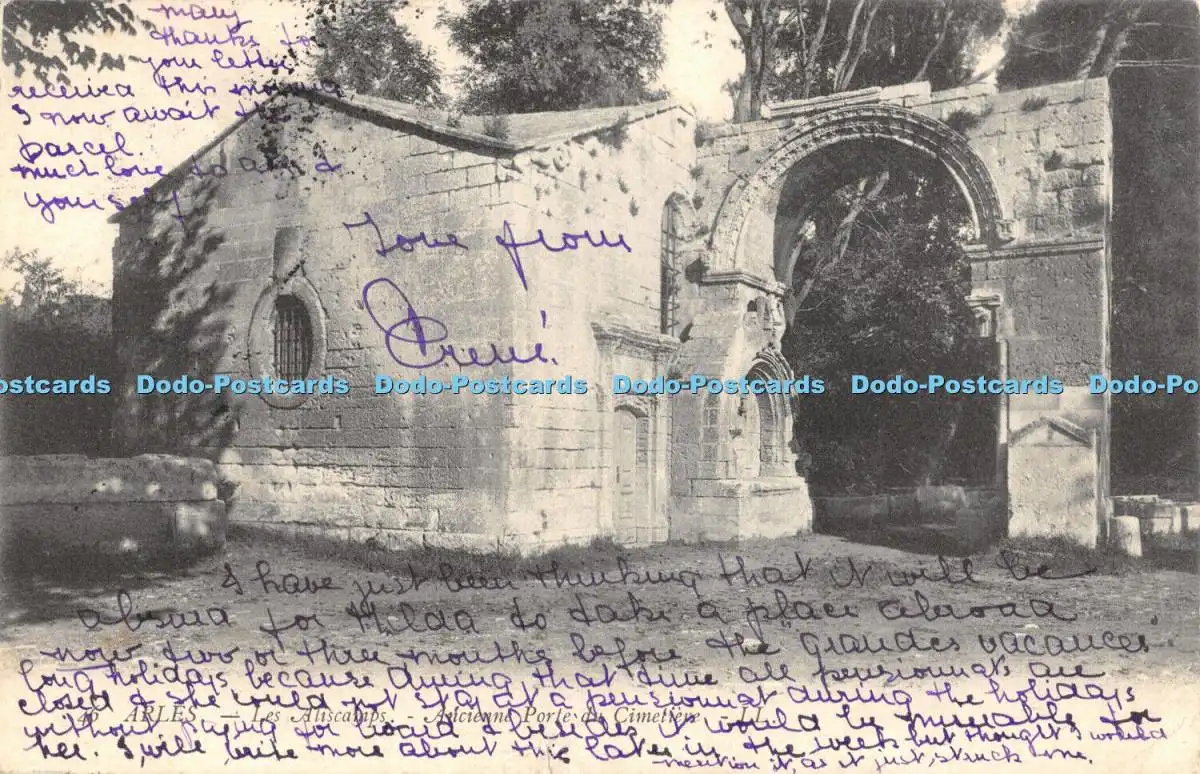 many
thanks for
your letter
received this morning
I now await the
parcel
much love to all &
yourself
Love from
Irené.
postcards Dodo-Postcards Dodo-Postcards Dodo-Postcards Dodo-Postcards Dodo-Postcards
I have just been thinking that it will be
absurd for Hilda to take a place abroad
now two or three months before the "grandes vacances"
long holidays because during that time all pensionnats are
closed & she could not stay at a pensionnat during the holidays
46 ARLES. — Les Aliscamps. - Ancienne Porte du Cimetière - LL.
without paying for board & besides it would be miserable for
her. I will write more about this later in the week but thought I would
mention it, as it just struck me.